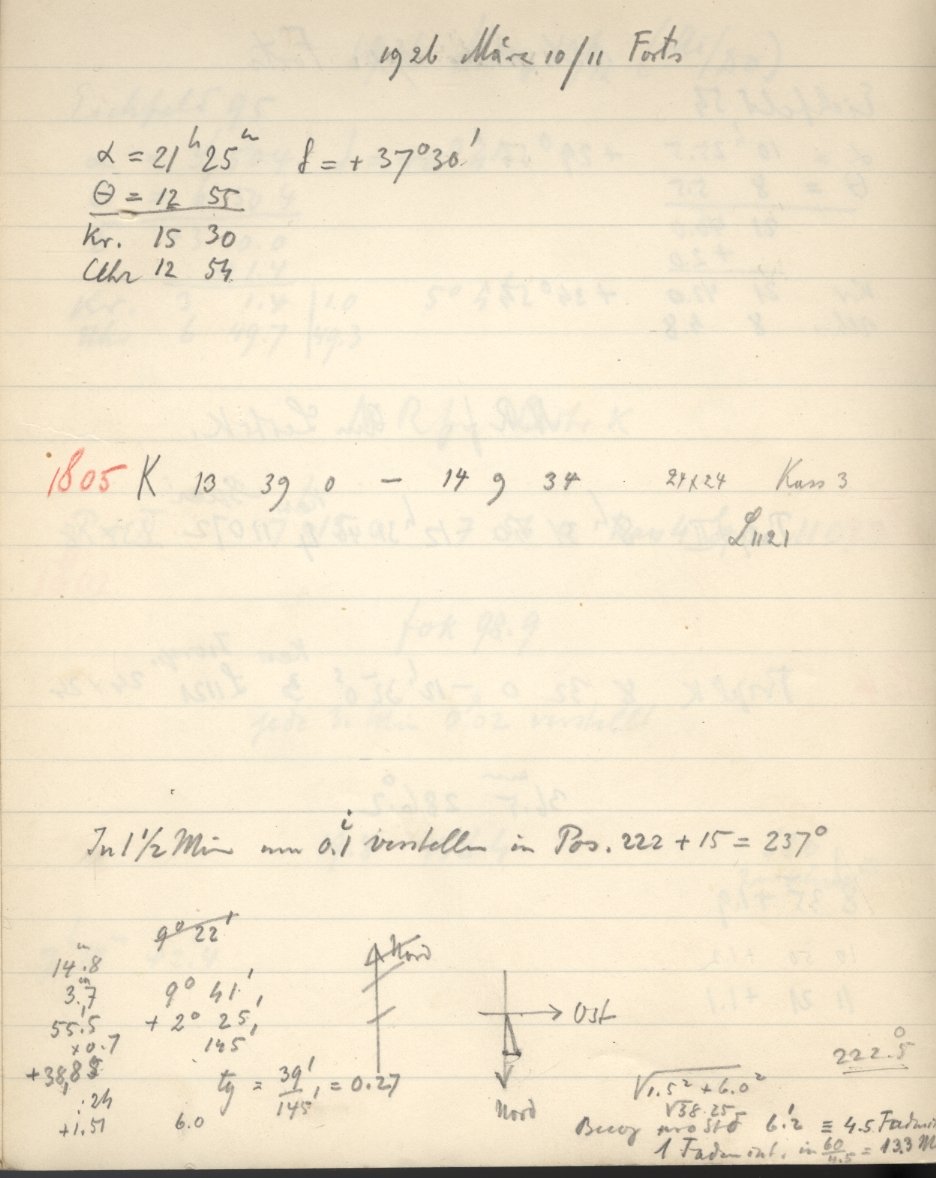 1926 März 10/11 Forts
α = 21ʰ 25ᵐ δ = + 37° 30'
Θ = 12 55
Kr. 15 30
Uhr 12 54
1805 K 13 39 0 – 14 9 34 24×24 Kass 3
L 1121
In 1 1/2 Min um 0.1 verstellen in Pos. 222 + 15 = 237°
9° 22'
14.8
3.7
55.5
×0.7
+38,85
:24
+1.51
9° 41'
+ 2° 25'
145
6.0
tg = 39'/145' = 0.27
Nord
Ost
Nord
222.5°
√1.5² + 6.0²
√38.25
Beweg pro Std 6.2' ≡ 4.5 Fadenint
1 Fadenint. in 60/4.5 = 13.3 M